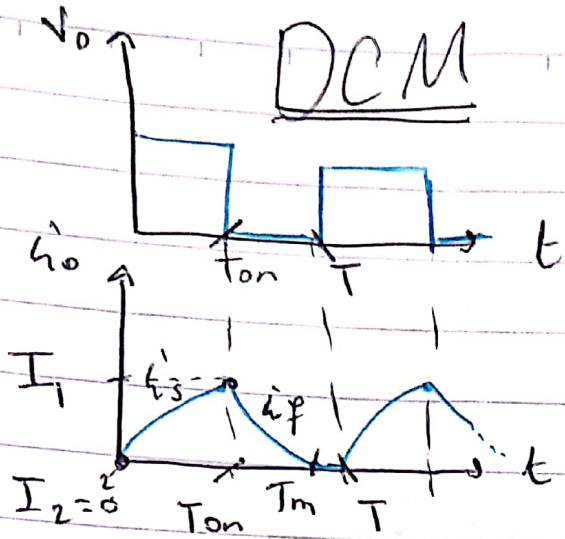 V₀
DCM
Ton T t
i₀
I₁ is if
I₂=0
Ton Tm T t